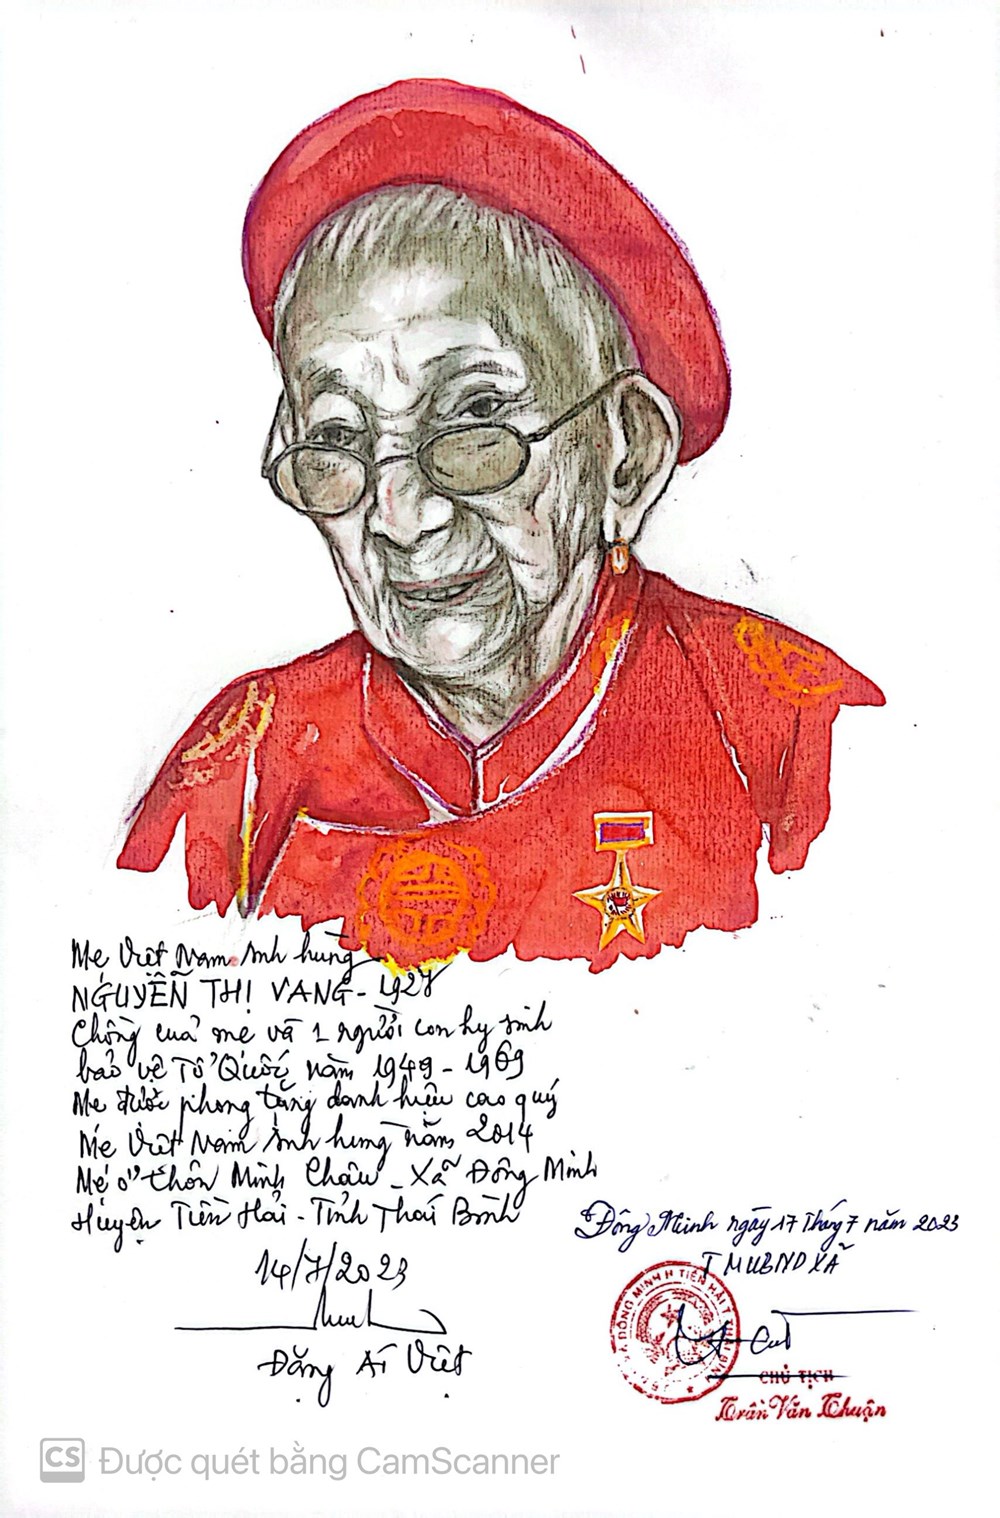 Mẹ Việt Nam Anh hùng
NGUYỄN THỊ VANG - 1927
Chồng của mẹ và 1 người con hy sinh
bảo vệ Tổ Quốc năm 1949 - 1969
Mẹ được phong tặng danh hiệu cao quý
Mẹ Việt Nam Anh hùng năm 2014
Mẹ ở thôn Minh Châu - Xã Đông Minh
Huyện Tiền Hải - Tỉnh Thái Bình
14/7/2023
Đặng Ái Việt
Đông Minh ngày 17 tháng 7 năm 2023
TMUBND XÃ
ĐÔNG MINH H TIỀN HẢI T
CHỦ TỊCH
Trần Văn Thuận
CS Được quét bằng CamScanner